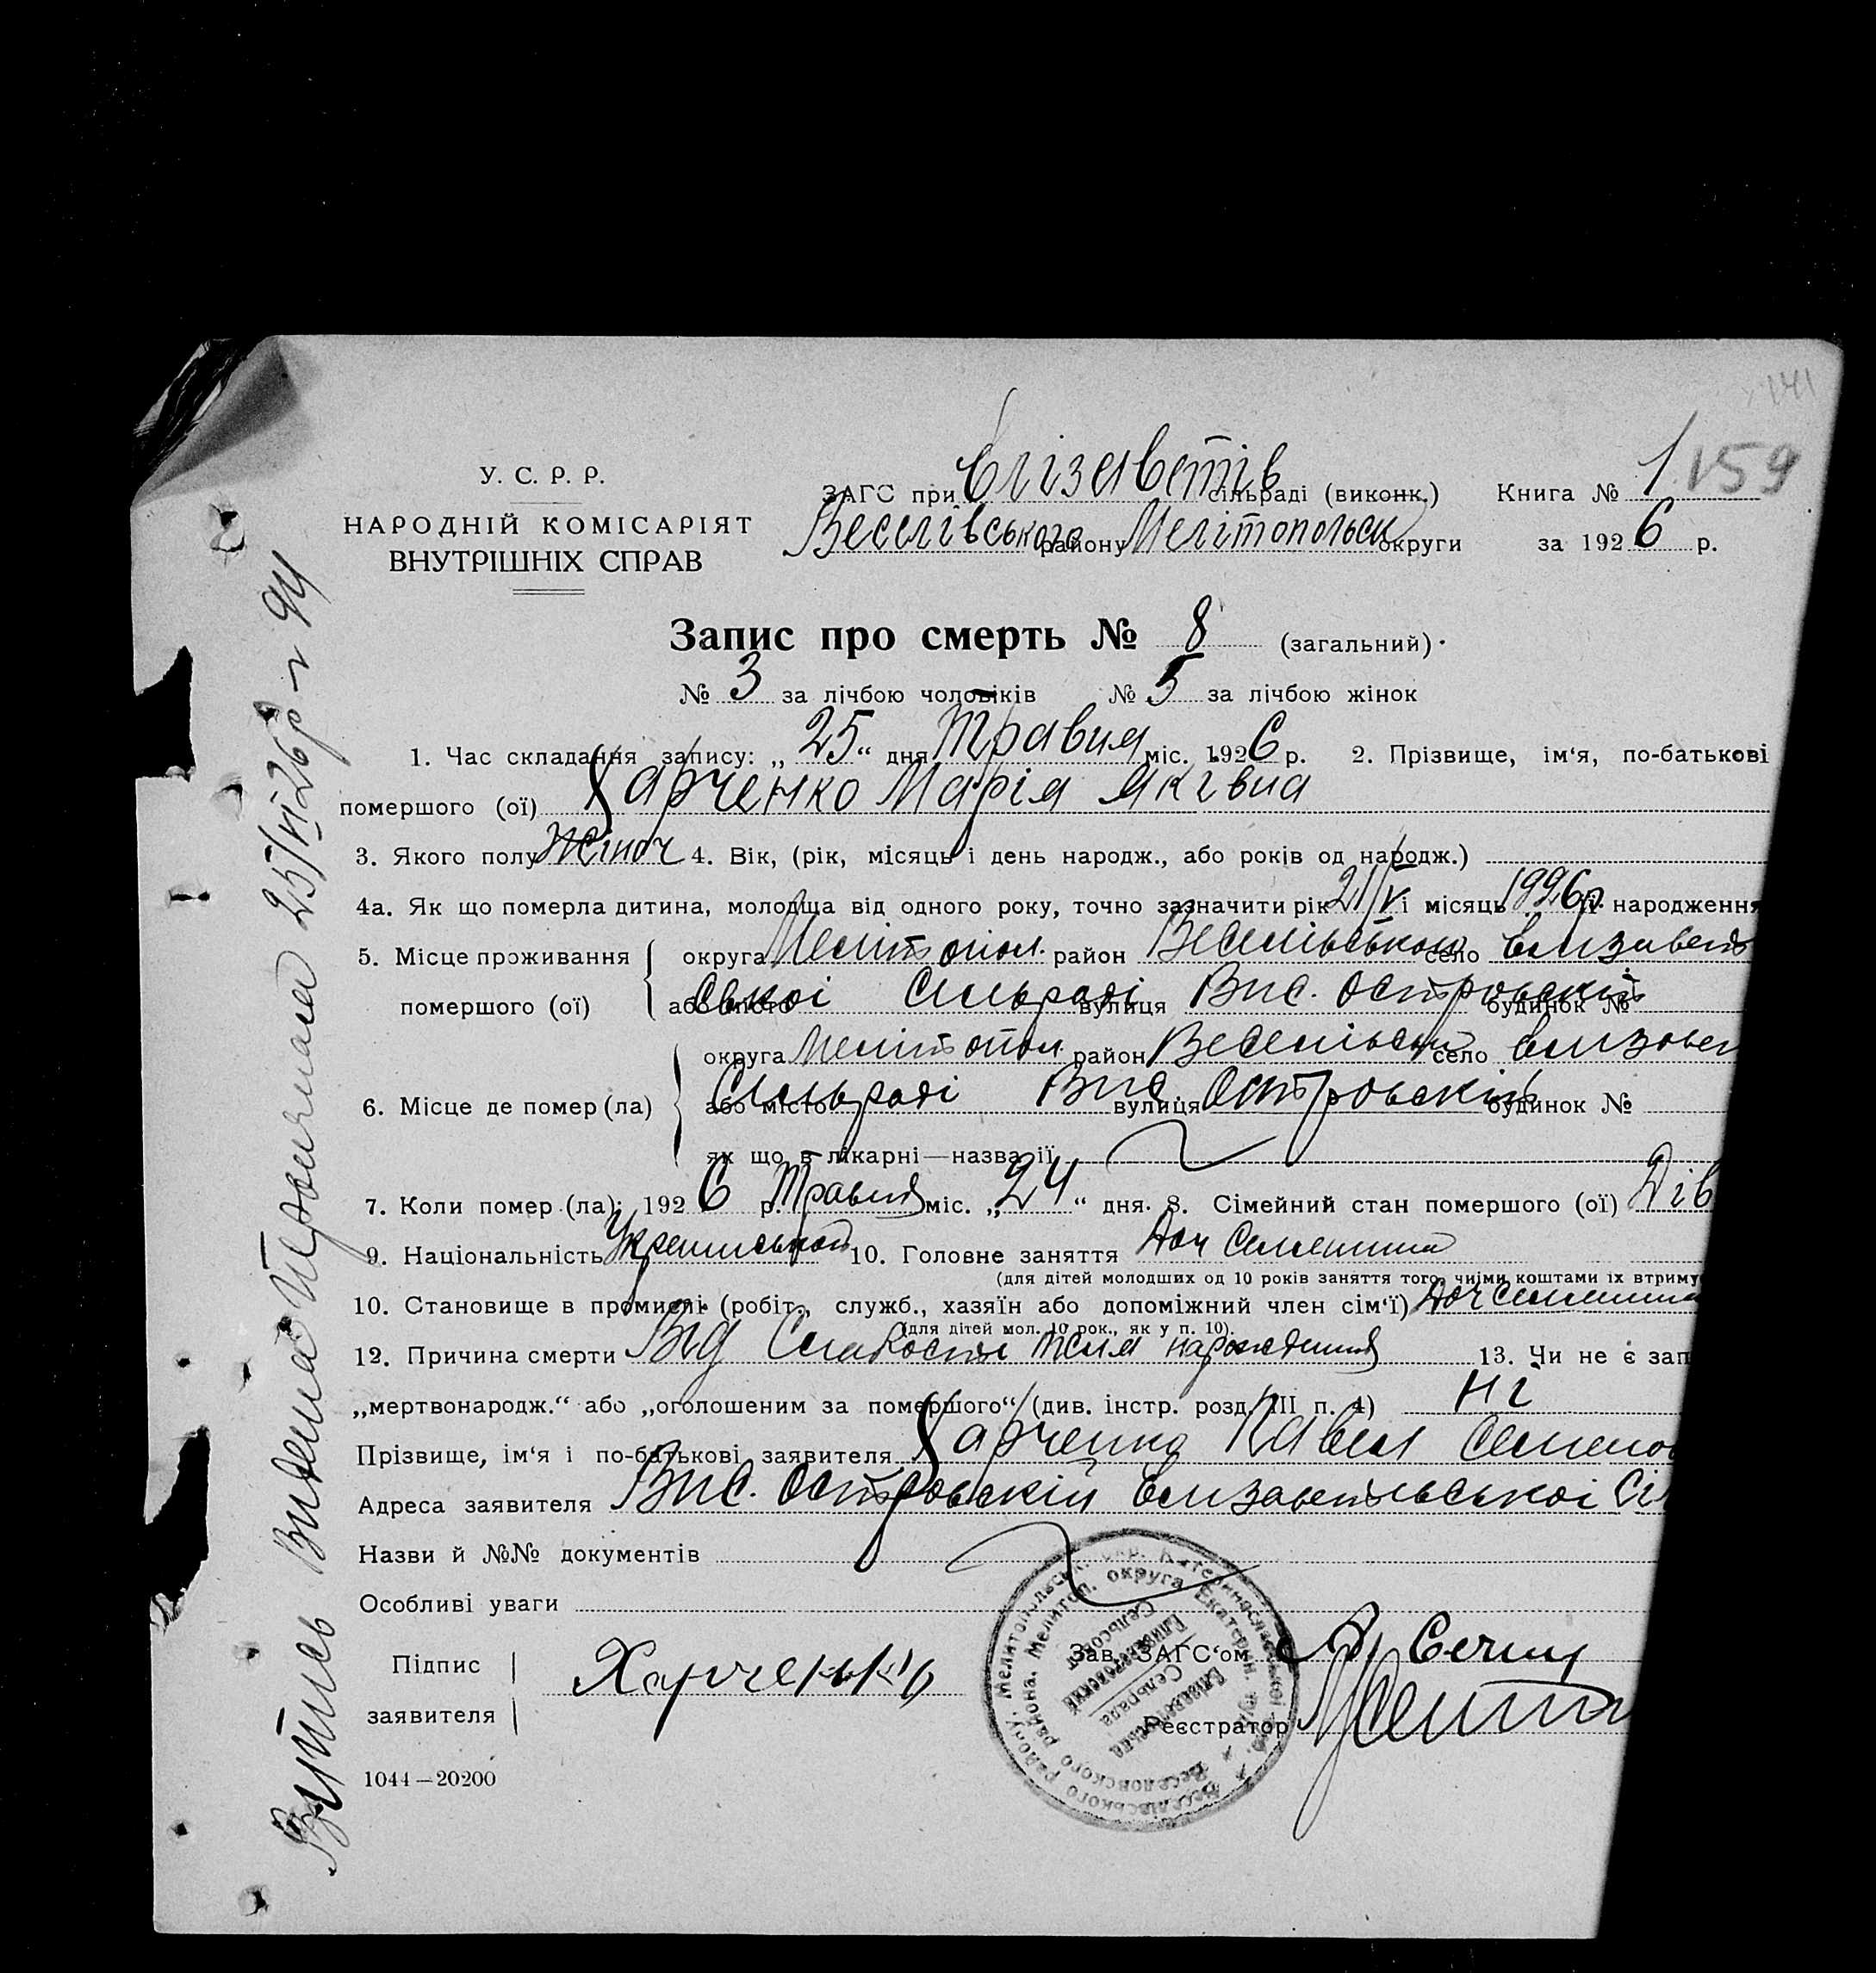 141
У. С. Р. Р.
НАРОДНІЙ КОМІСАРІЯТ
ВНУТРІШНІХ СПРАВ
ЗАГС при Єлізаветів сільраді (виконк.) Книга № 1 159
Веселівського району Мелітопольськ округи за 1926 р.
Запис про смерть № 8 (загальний).
№ 3 за лічбою чоловіків № 5 за лічбою жінок
1. Час складання запису: „25“ дня Травня міс. 1926 р. 2. Прізвище, ім‘я, по-батькові
помершого (ої) Харченко Марія Яківна
3. Якого полу Жіноч 4. Вік, (рік, місяць і день народж., або років од народж.)
4а. Як що померла дитина, молодща від одного року, точно зазначити рік 21/V і місяць 1926р. народження
5. Місце проживання округа Мелітопол. район Веселівського село Єлизавет
помершого (ої) або місто ської Сільраді вулиця Вис. Островскій будинок №
округа Мелітопол. район Веселівськ село
6. Місце де помер (ла) або місто Сільраді Вис. вулиця Островскій будинок №
як що в лікарні—назва її
7. Коли помер (ла): 1926 р. Травня міс. „24“ дня. 8. Сімейний стан помершого (ої) Дів
9. Національність 10. Головне заняття Доч Селянина
(для дітей молодших од 10 років заняття того, чиїми коштами їх втриму
10. Становище в промислі (робіт., служб., хазяїн або допоміжний член сім‘ї) Доч Селянина
(для дітей мол. 10 рок., як у п. 10).
12. Причина смерти Від Слабости після народження 13. Чи не є зап
„мертвонародж.“ або „оголошеним за помершого“ (див. інстр. розд. III п. 4) Ні
Прізвище, ім‘я і по-батькові заявителя Харченко Павел Семенов
Адреса заявителя Вис. Островскій Єлизаветівської Сіл
Назви й №№ документів
Особливі уваги
Підпис
заявителя Харченко
Зав. ЗАГС‘ом
Реєстратор
1044—20200
25/VI 26р